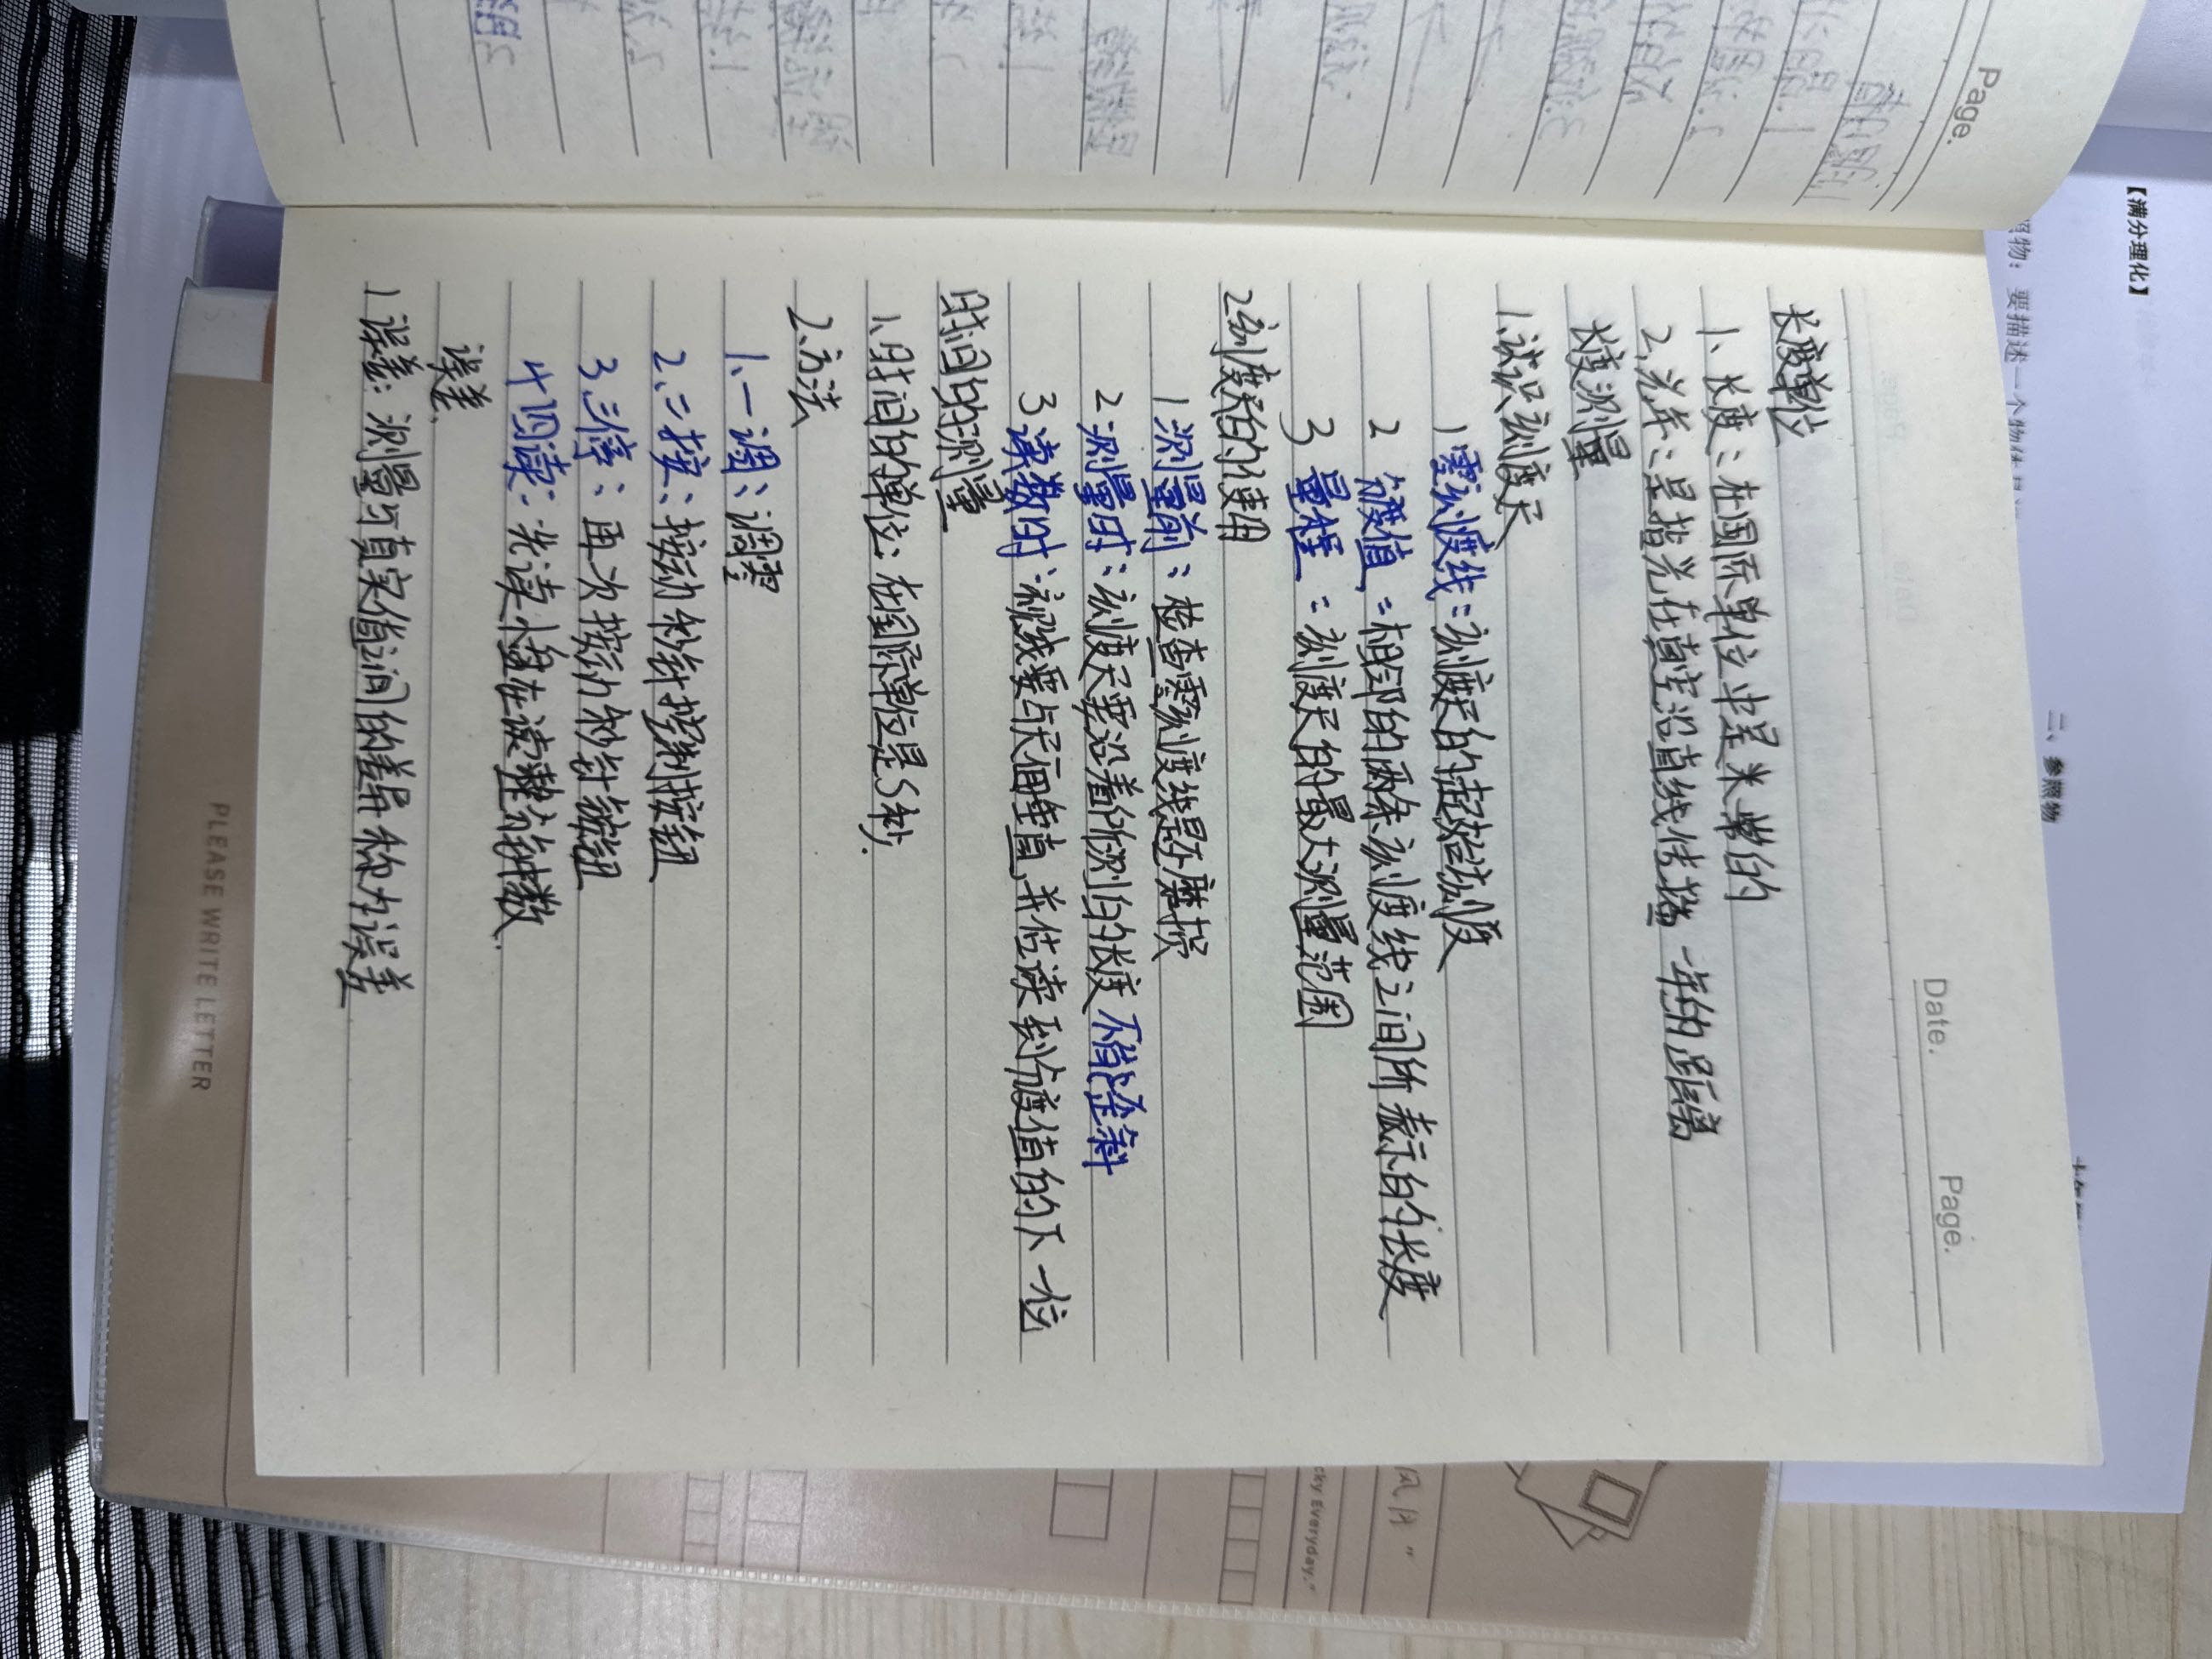 Date.
Page.
长度单位
1、长度：在国际单位中是米 常的
2、光年：是指光在真空沿直线传播 一年的距离
长度测量
1.认识刻度尺
1 零刻度线：刻度尺的起始刻度
2 分度值：相邻的两条刻度线之间所表示的长度
3 量程：刻度尺的最大测量范围
2刻度尺的使用
1测量前：检查零刻度线是否磨损
2 测量时：刻度尺要沿着所测的长度 不能歪斜
3 读数时：视线要与尺面垂直，并估读到分度值的下一位
时间的测量
1.时间的单位：在国际单位是S 秒.
2、方法
1.一调：调零
2.二按：按动秒针控制按钮
3.三停：再次按动秒针旋钮
4 四读：先读小盘在读整分钟数.
误差
1 误差：测量与真实值之间的差异 称为误差
Page.
【满分理化】
照物：要描述一个物体
二、参照物
PLEASE WRITE LETTER
cky Everyday."